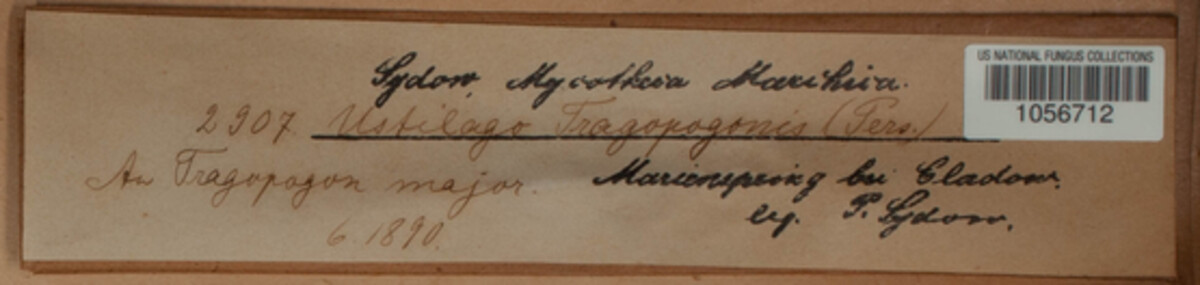 Sydow, Mycotheca Marchica.
US NATIONAL FUNGUS COLLECTIONS
1056712
2907. Ustilago Tragopogonis (Pers.)
An Tragopogon major. Marienspring bei Cladow.
6.1890. leg. P. Sydow.